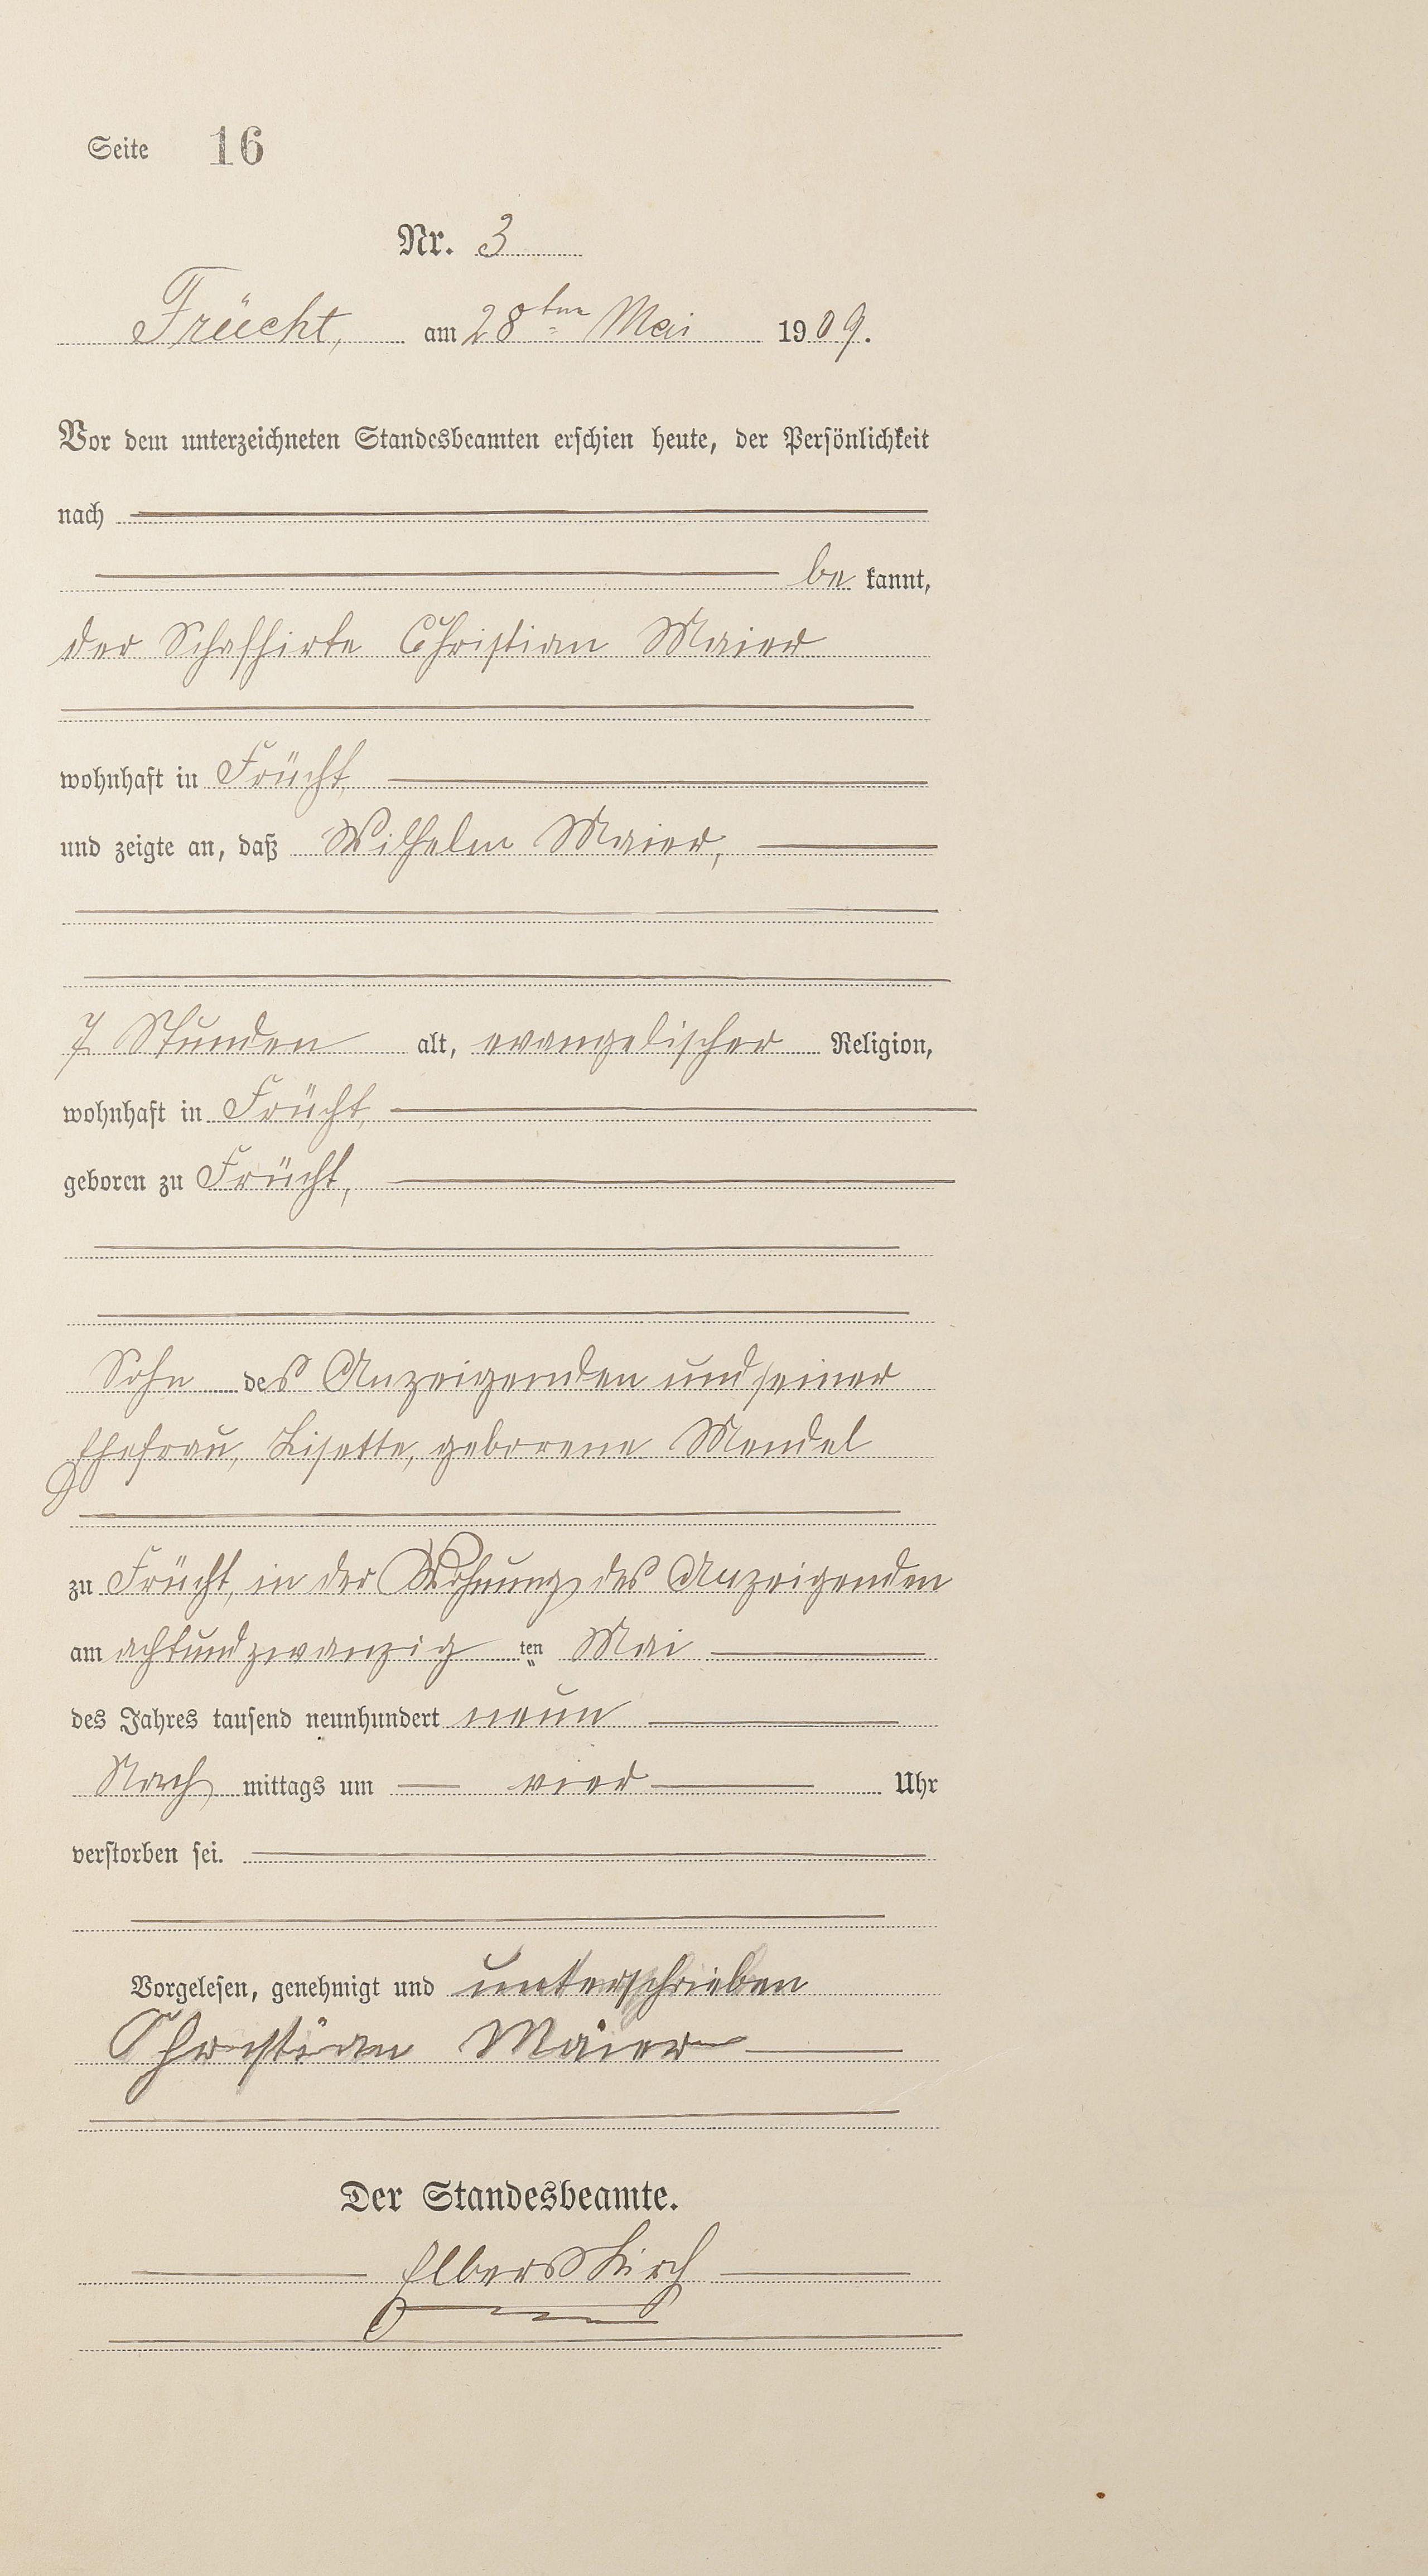 Seite 16
Nr. 3
Frücht, am 28ten Mai 1909.
Vor dem unterzeichneten Standesbeamten erschien heute, der Persönlichkeit
nach
be kannt,
der Schafhirte Christian Maier
wohnhaft in Frücht
und zeigte an, daß Wilhelm Maier,
7 Stunden alt, evangelischer Religion,
wohnhaft in Frücht,
geboren zu Frücht,
Sohn des Anzeigenden und seiner
Ehefrau, Lisette, geborene Mendel
zu Frücht, in der Wohnung des Anzeigenden
am achtundzwanzig ten Mai
des Jahres tausend neunhundert neun
Nach mittags um vier Uhr
verstorben sei.
Vorgelesen, genehmigt und unterschrieben
Christian Maier
Der Standesbeamte.
Elberskirch